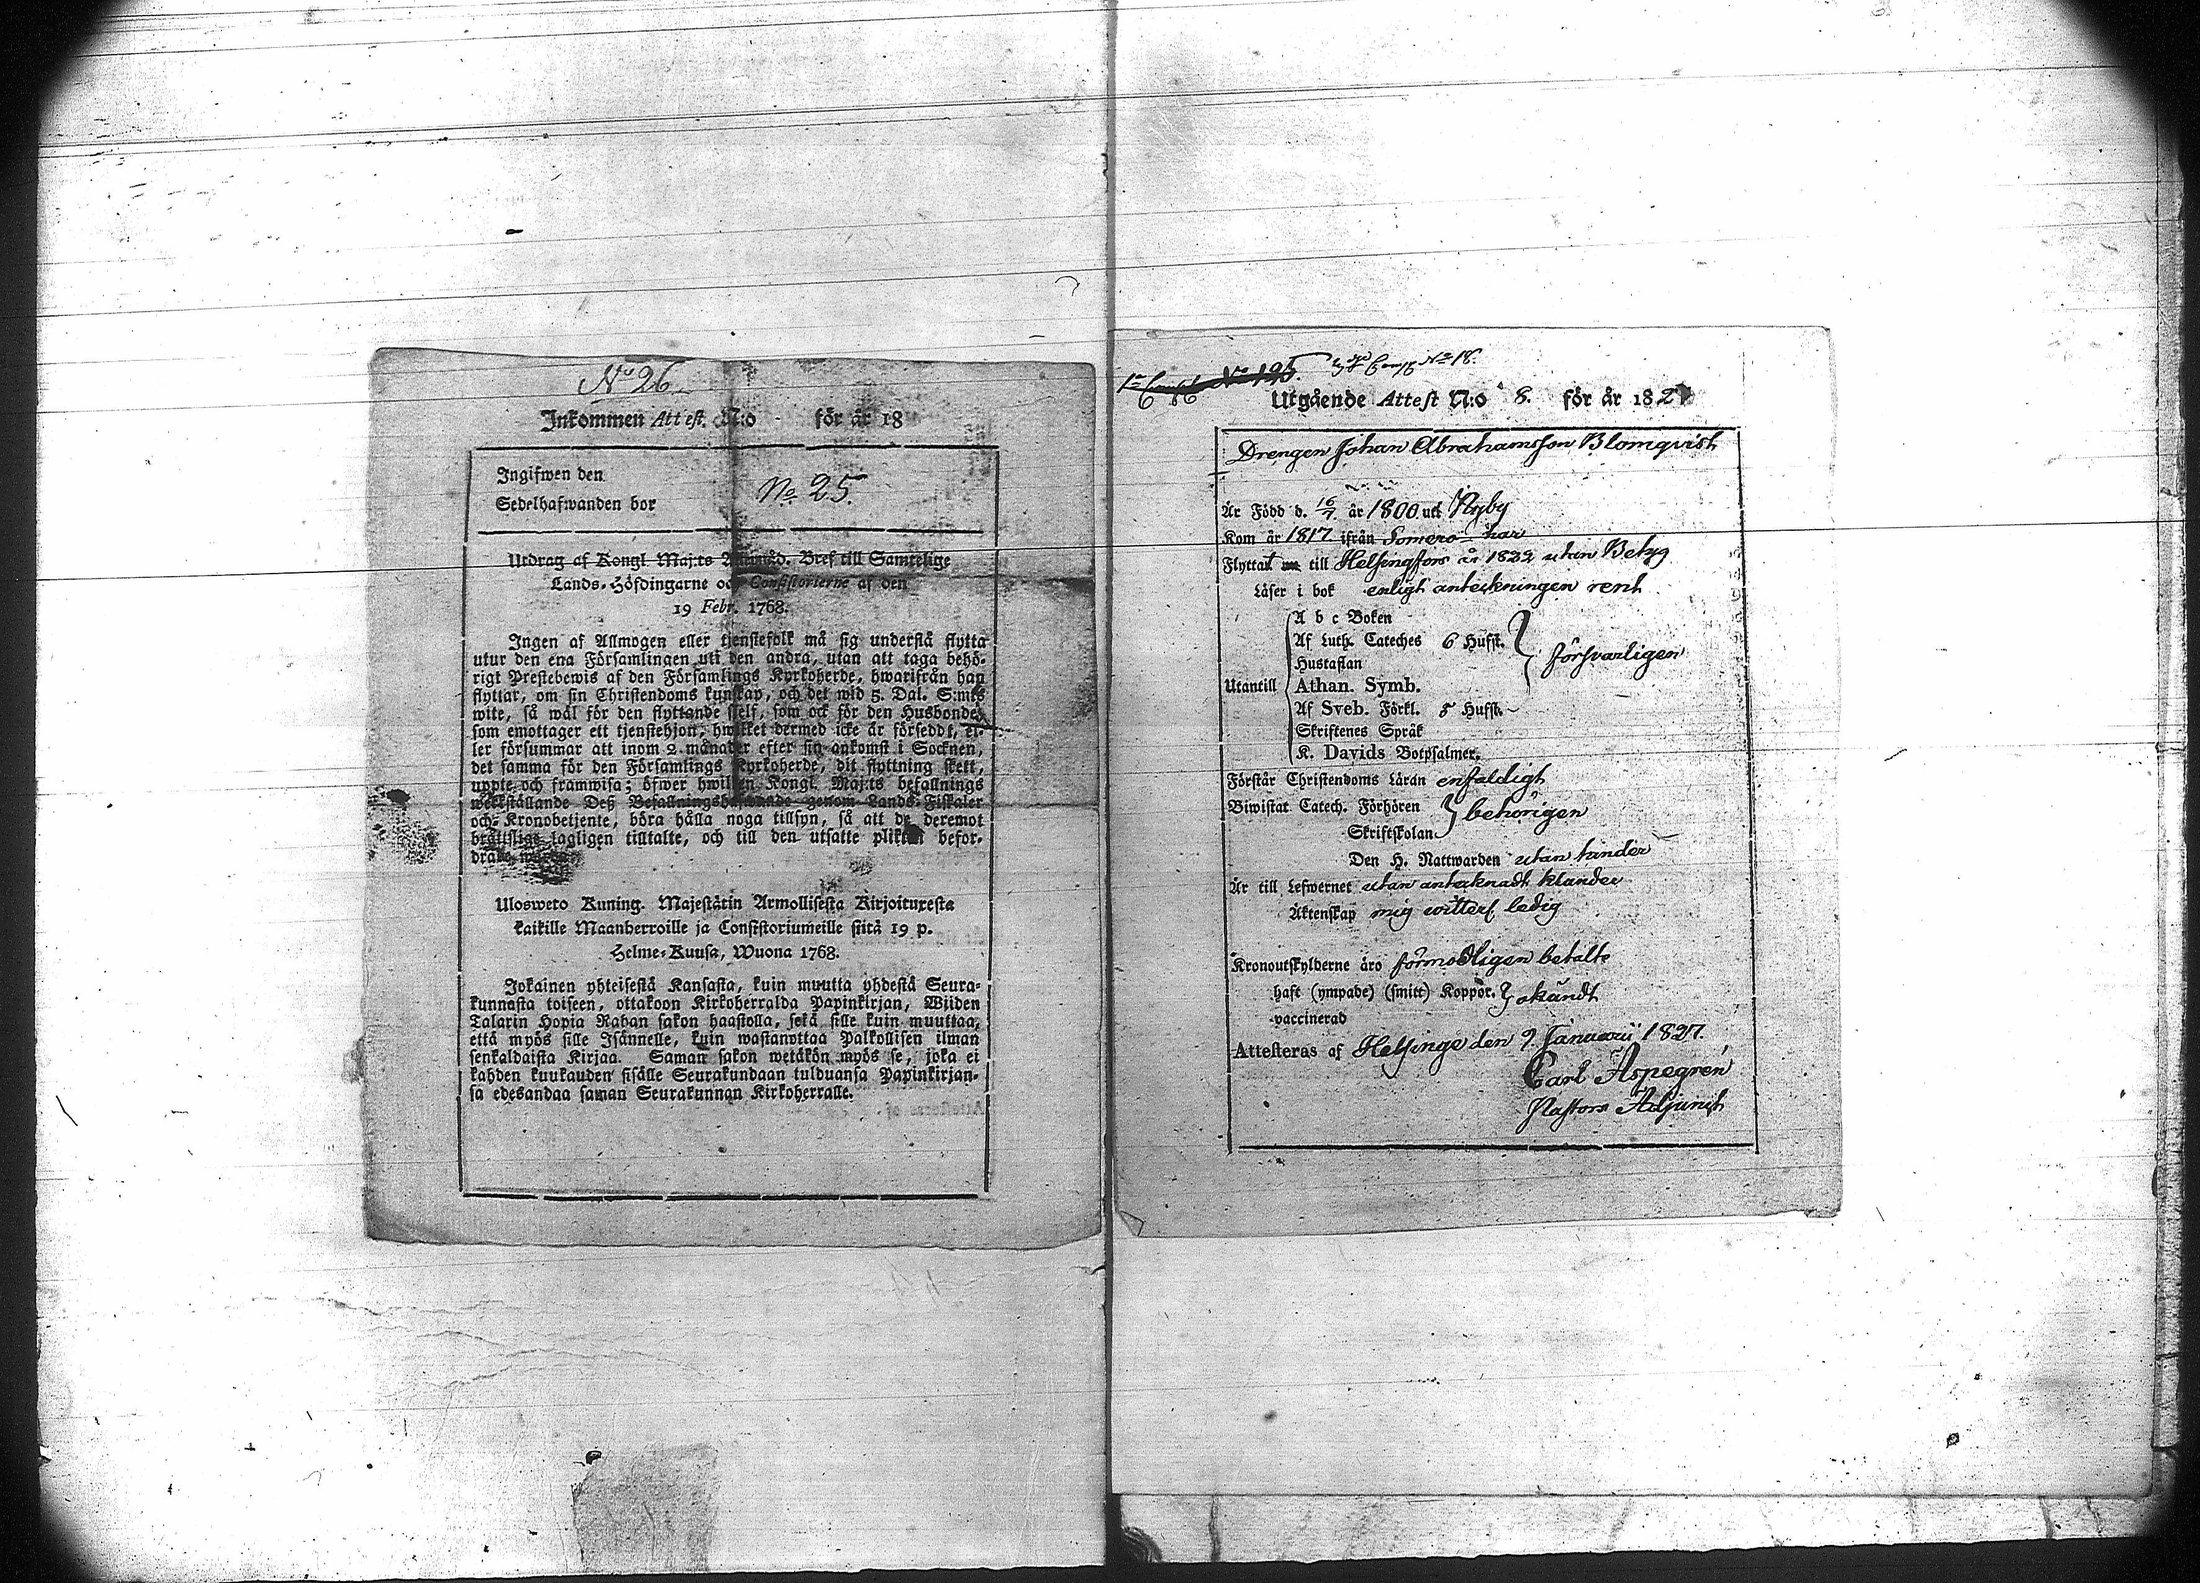 No 26.
Inkommen Attest. N:o för år 18
Ingifwen den
Sedelhafwanden bor
No 25.
Utdrag af Kongl Maj:ts Allmåd. Bref till Samtelige
Lands-Höfdingarne och Consistorierne af den
19 Febr. 1768.
Ingen af Allmogen eller tjenstefolk må sig understå flytta
utur den ena Församlingen uti den andra, utan att taga behö-
rigt Prestebewis af den Församlings Kyrkoherde, hwarifrån han
flyttar, om sin Christendoms kunskap, och det wid 5. Dal. S:mts
wite, så wäl för den flyttande sjelf, som ock för den Husbonde,
som emottager ett tjenstehjon, hwilket dermed icke är förseddt, el-
ler försummar att inom 2 månader efter sin ankomst i Socknen,
det samma för den Församlings Kyrkoherde, dit flyttning skett,
uppte och framwisa; öfwer hwilken Kongl. Maj:ts befallnings
werkställande Deß Befallningshafwande genom Lands-Fiskaler
och Kronobetjente, böra hålla noga tillsyn, så att de deremot
brottslige lagligen tilltalte, och till den utsatte plikten befor-
drade warda.
Ulosweto Kuning. Majestätin Armollisesta Kirjoituxesta
kaikille Maanherroille ja Consistoriumeille siitä 19 p.
Helme-Kuusa, Wuona 1768.
Jokainen yhteisestä Kansasta, kuin muutta yhdestä Seura-
kunnasta toiseen, ottakoon Kirkoherralda Papinkirjan, Wiiden
Talarin Hopia Rahan sakon haastolla, sekä sille kuin muuttaa,
että myös sille Isännelle, kuin wastanottaa Palkollisen ilman
senkaldaista Kirjaa. Saman sakon wetäkön myös se, joka ei
kahden kuukauden sisälle Seurakundaan tulduansa Papinkirjan-
sa edesandaa saman Seurakunnan Kirkoherralle.
No 195. No 18.
Utgående Attest N:o 8. för år 182
Drengen Johan Abrahamsson Blomqvist
Är Född d. 16/7 år 1800 uti Nyby
Kom år 1817 ifrån Somero har
Flyttat till Helsingfors år 1822 utan Betyg
Läser i bok enligt anteckningen rent
A b c Boken
Af Luth. Cateches 6 Hufst.
Hustaflan
försvarligen
Utantill Athan. Symb.
Af Sveb. Förkl. 5 Hufst.
Skriftenes Språk
K. Davids Botpsalmer.
Förstår Christendoms Läran enfaldigt
Biwistat Catech. Förhören
Skriftskolan behörigen
Den H. Nattwarden utan hinder
Är till Lefwernet utan antecknadt klander
Äktenskap mig witterl. ledig
Kronoutskylderne äro förmodligen betalte
haft (ympade) (smitt) Koppor. okändt
vaccinerad
Attesteras af Helsinge den 9 Januarii 1827.
Carl Aspegrén
Pastors Adjunct